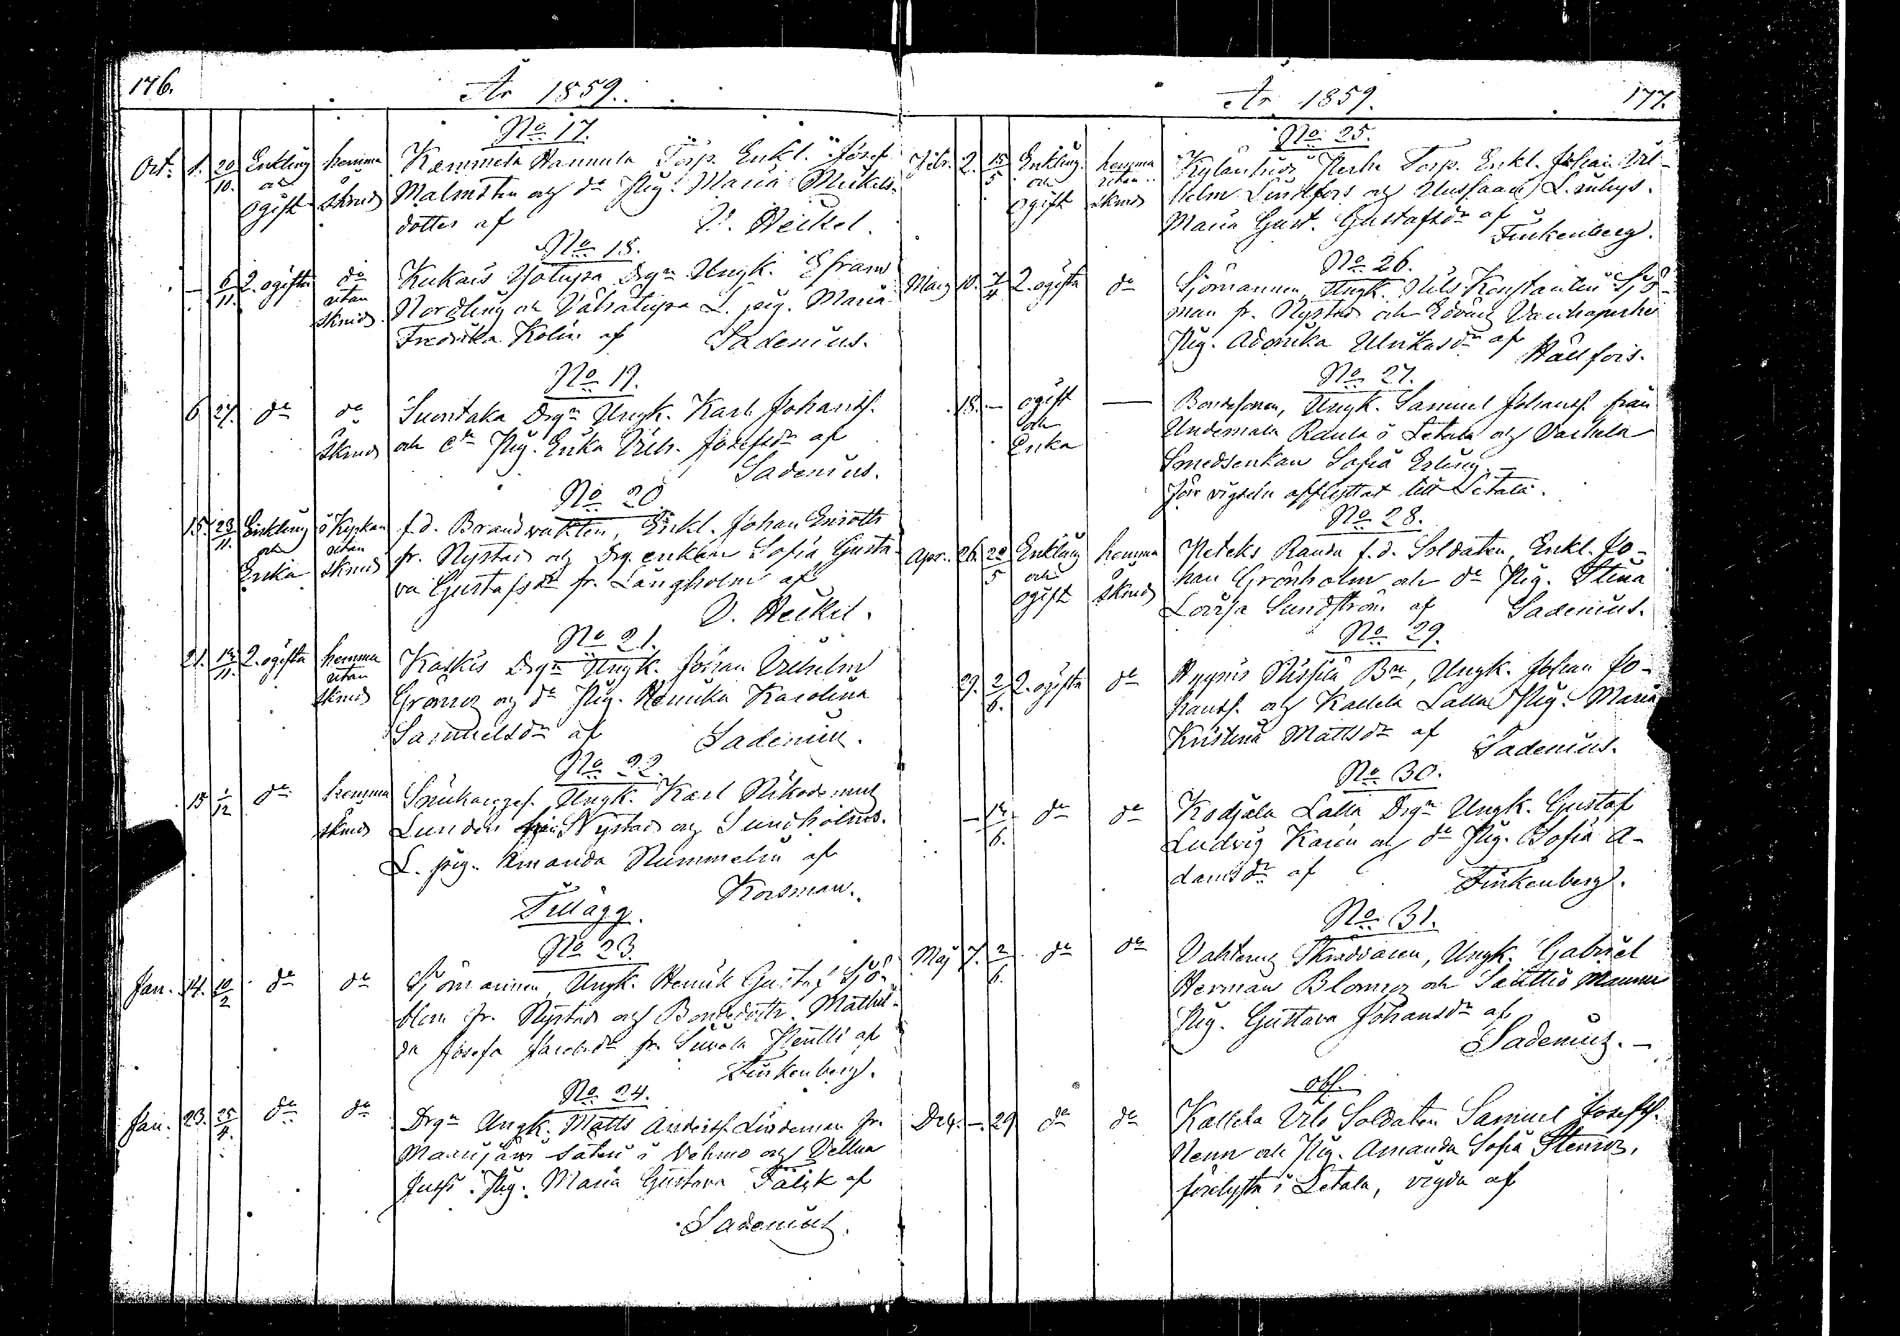 176.
År 1859.
No 17.
Oct. 1. 20/10. Enkling och ogift hemma i skrud
Kammela Hannula Torp. Enkl. Josef
Malmsten och do Pig. Maria Mickels-
dotter af D. Heikel.
No 18.
— 6/11. 2. ogifta do utan skrud.
Kukais Yötupa Drgn Ungk. Efraim
Nordling och L. pig. Maria
Fredrika Kolin af Sadenius.
No 19.
6 27. do do i skrud
Suontaka Drgn Ungk. Karl Johanss.
och do Pig. Erika Vilh. Josefsdr af
Sadenius.
No 20.
15. 23/11. Enkling och Enka i Kyrkan utan skrud
f.d. Brandvakten, Enkl. Johan Enroth
fr. Nystad och Drg.enkan Sofia Gusta-
va Gustafsdr fr. Långholm af
D. Heikel.
No 21.
21. 2. ogifta hemma utan skrud
Kaskis Drgn Ungk. Johan Vilhelm
Grönroos och do Pig. Henrika Karolina
Samuelsdr af Sadenius.
No 22.
15 1/12 do hemma i skrud
Ungk. Karl Nikodemus
Lundén från Nystad och Sundholms
L. pig. Amanda Nummelin af
Korsman.
Tillägg.
No 23.
Jan. 14. 10/2 do do
Sjömannen, Ungk. Henrik Gustaf Sjö-
blom fr. Nystad och Bondedottr. Mathil-
da Josefa Jacobsdr fr. Pentti af
Finkenberg.
No 24.
Jan. 23. 25/4. do do
Drgn Ungk. Matts Anderss. Lindeman fr.
i Vehmo och Vellua
Pig. Maria Gustava Falck af
Sadenius.
År 1859.
177.
No 25.
Febr. 2. 15/5 Enkling och ogift hemma utan skrud
Perho Torp. Enkl. Johan Vil-
helm Lindfors och L. inhys.
Maria Gust. Gustafsdr af
Finkenberg.
No 26.
Mars 10. 7/4 2. ogifta do
Sjömannen, Ungk. Nils Konstantin Sjö-
man fr. Nystad och
Pig. Ulrikasdr af Hällfors.
No 27.
18. — ogift och Enka —
Bondesonen, Ungk. Samuel Johanss. från
Untamala Raula i Letala och
Smedsenkan Sofia —
före vigseln afflyttat till Letala.
No 28.
Apr. 26. 20/5 Enkling och ogift hemma i skrud
Ranta f.d. Soldaten, Enkl. Jo-
han Grönholm och do Pig. Stina
Lovisa Sundström af Sadenius.
No 29.
29. 2/6. 2. ogifta do
Nissilä Bn, Ungk. Johan Jo-
hanss. och Kallela Lalla Pig. Maria
Kristina Mattsdr af Sadenius.
No 30.
— do do
Kodjala Lalla Drgn Ungk. Gustaf
Ludvig Karén och do Pig. Sofia A-
damsdr af Finkenberg.
No 31.
Maj 7. 2/6. do do
Skräddaren, Ungk. Gabriel
Herman Blomroos och
Pig. Gustava Johansdr af
Sadenius. —
obs.
— 29 do do
Kallela Soldaten Samuel Josefss.
Renn och Pig. Amanda Sofia Stenroos,
förelysta i Letala, vigda af